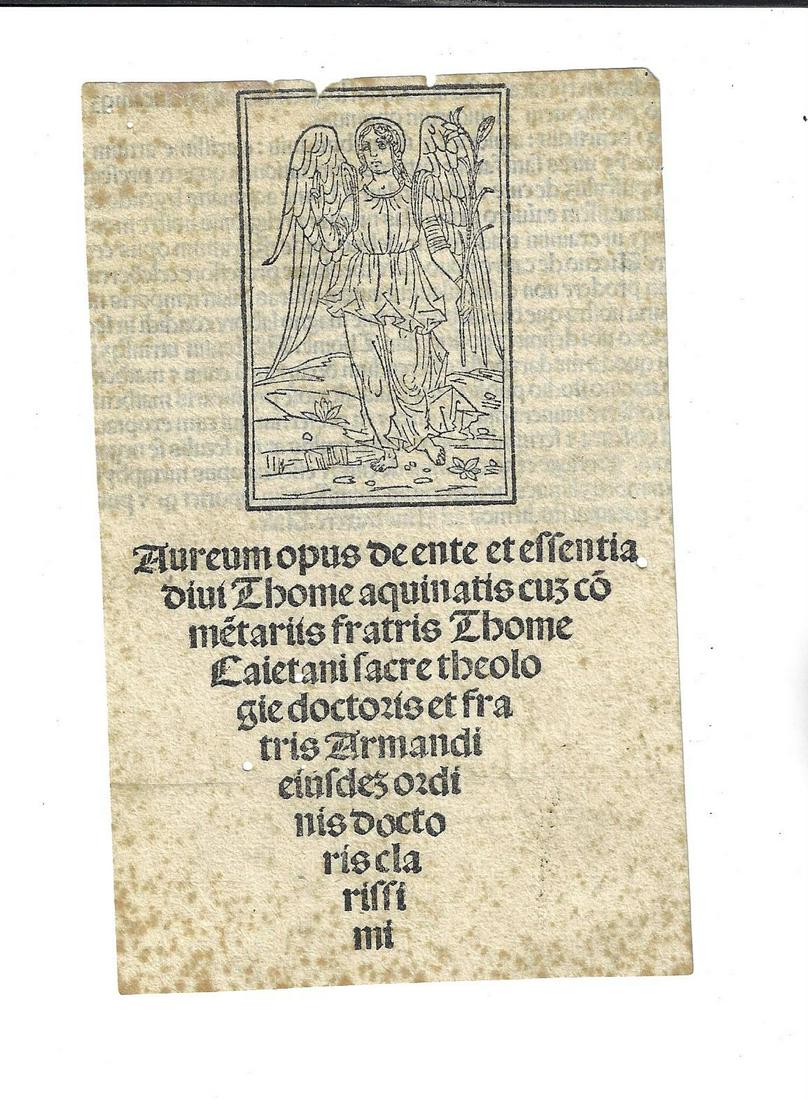 Aureum opus de ente et essentia
diui Thome aquinatis cuȝ cō
mētariis fratris Thome
Caietani sacre theolo
gie doctoris et fra
tris Armandi
eiusdeȝ ordi
nis docto
ris cla
rissi
mi